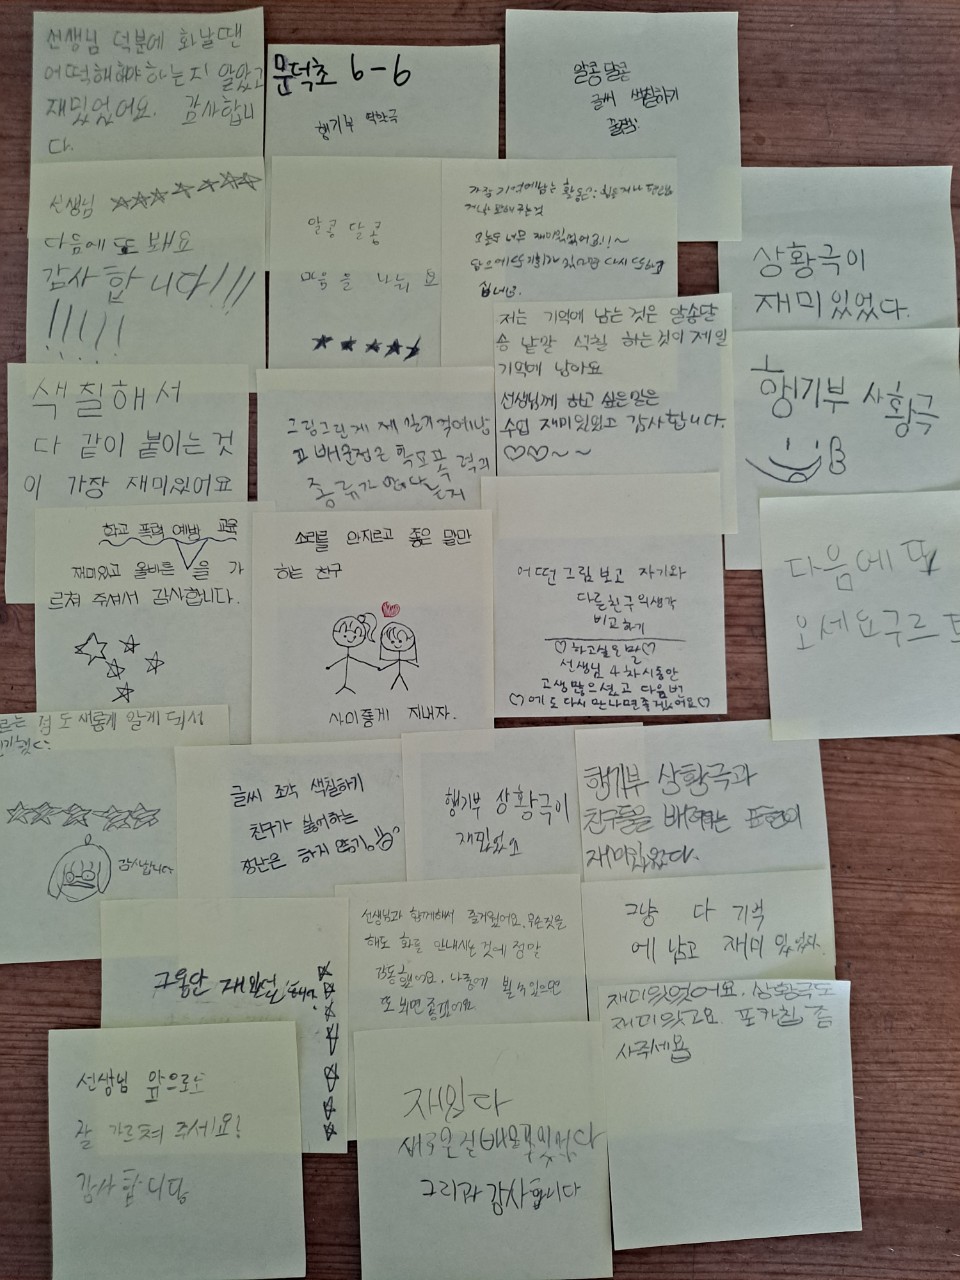 선생님 덕분에 화날땐
어떡해해야하는지 알았고
재밌었어요. 감사합니
다.
문덕초 6-6
행기부
알콩달콩
글씨 색칠하기
선생님
다음에 또 봐요
감사합니다!!!
!!!!!
알콩 달콩
마음을 나눠요
가장 기억에남는 활동은:
오늘도 너무 재미있었어요!!~
상황극이
재미있었다.
저는 기억에 남는 것은 알송달
송 낱말 색칠 하는것이 제일
기억에 남아요
선생님께 하고 싶은말은
수업 재미있었고 감사합니다.
♡♡~~
행기부 사황극
색칠해서
다 같이 붙이는 것
이 가장 재미있어요
그림그린게 제일기억에남
고 배운점은 학교폭력의
종류가
다음에 또
오세요구르트
학교 폭력 예방 교육
재미있고 올바른 을 가
르쳐 주셔서 감사합니다.
소리를 안지르고 좋은 말만
하는 친구
사이좋게 지내자.
어떤그림보고 자기와
다른친구의생각
비교하기
♡하고싶은말♡
선생님 4차시동안
고생많으셨고 다음번
♡에도 다시 만나면좋겠어요♡
르는 점도 새롭게 알게 돼서
감사합니다
글씨 조각 색칠하기
친구가 싫어하는
장난은 하지 않기!
행기부 상황극이
재밌었고
행기부 상황극과
친구들을 배려하는 표현이
재미있었다.
선생님과 함께해서 즐거웠어요. 무슨짓을
해도 화를 안내시는 것에 정말
감동했어요. 나중에 볼수있으면
또 뵈면 좋겠어요.
그냥 다 기억
에 남고 재미있었다.
그동안
재미있었어요. 상황극도
재미있고요. 포카칩 좀
사주세요
선생님 앞으로도
잘 가르쳐 주세요!
감사합니다
재밌다
그리고 감사합니다